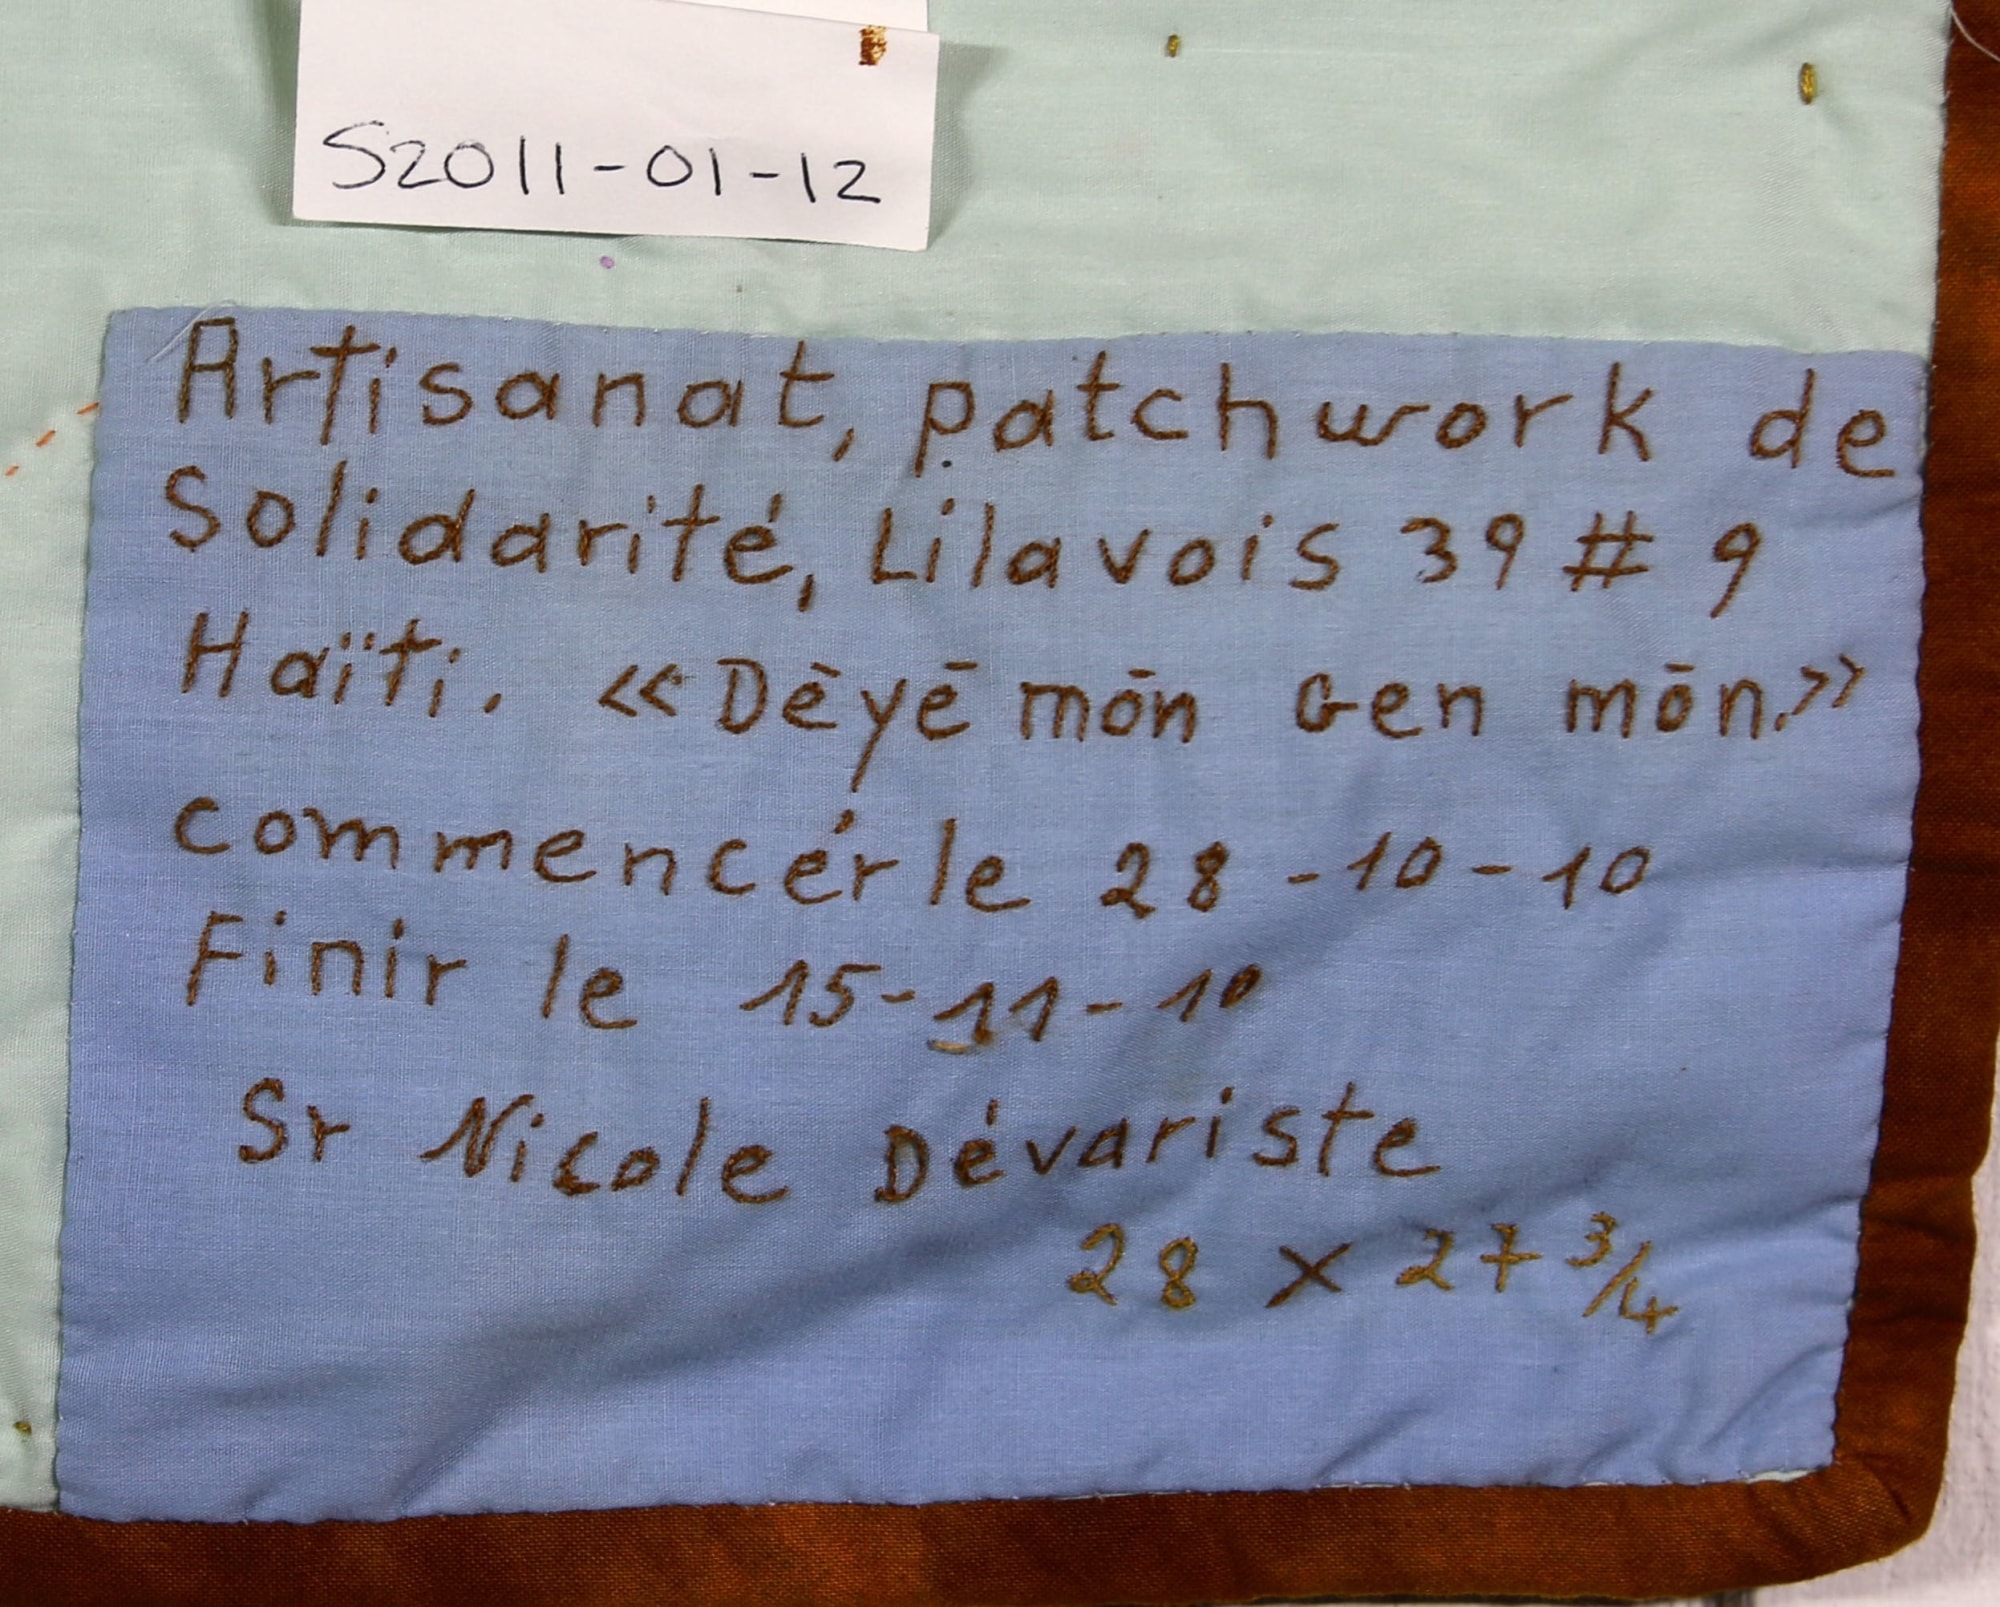 S2011-01-12
Artisanat, patchwork de
Solidarité, Lilavois 39 # 9
Haïti. «Dēyē mōn Gen mōn.»
commencér le 28-10-10
Finir le 15-11-10
Sr Nicole Dévariste
28 x 27 3/4